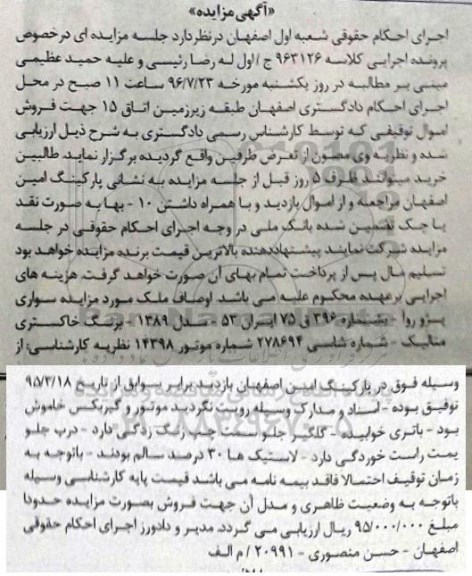 «آگهی مزایده»
اجرای احکام حقوقی شعبه اول اصفهان درنظر دارد جلسه مزایده ای درخصوص
پرونده اجرایی کلاسه ۹۶۳۱۲۶ ج/اول له رضا رئیسی و علیه حمید عظیمی
مبنی بر مطالبه در روز یکشنبه مورخه ۹۶/۷/۲۳ ساعت ۱۱ صبح در محل
اجرای احکام دادگستری اصفهان طبقه زیرزمین اتاق ۱۵ جهت فروش
اموال توقیفی که توسط کارشناس رسمی دادگستری به شرح ذیل ارزیابی
شده و نظریه وی مصون از تعرض طرفین واقع گردیده برگزار نماید. طالبین
خرید میتوانند ظرف ۵ روز قبل از جلسه مزایده به نشانی پارکینگ امین
اصفهان مراجعه و از اموال بازدید و با همراه داشتن ۱۰ - بها به صورت نقد
یا چک تضمین شده بانک ملی در وجه اجرای احکام حقوقی در جلسه
مزایده شرکت نمایند پیشنهاددهنده بالاترین قیمت برنده مزایده خواهد بود
تسلیم مال پس از پرداخت تمام بهای آن صورت خواهد گرفت. هزینه های
اجرایی برعهده محکوم علیه می باشد. اوصاف ملک مورد مزایده سواری
پژو روآ - بشماره ۳۹۶ ق ۷۵ ایران ۵۳ - مدل ۱۳۸۹ - برنگ خاکستری
متالیک - شماره شاسی ۲۷۸۶۹۴ شماره موتور ۱۴۳۹۸ نظریه کارشناسی: از
وسیله فوق در پارکینگ امین اصفهان بازدید برابر سوابق از تاریخ ۹۵/۳/۱۸
توقیف بوده - اسناد و مدارک وسیله رویت نگردید موتور و گیربکس خاموش
بود - باتری خوابیده - گلگیر جلو سمت چپ رنگ زدگی دارد - درب جلو
سمت راست خوردگی دارد - لاستیک ها ۳۰ درصد سالم بودند - باتوجه به
زمان توقیف احتمالا فاقد بیمه نامه می باشد قیمت پایه کارشناسی وسیله
باتوجه به وضعیت ظاهری و مدل آن جهت فروش بصورت مزایده حدودا
مبلغ ۹۵/۰۰۰/۰۰۰ ریال ارزیابی می گردد. مدیر و دادورز اجرای احکام حقوقی
اصفهان - حسن منصوری - ۲۰۹۹۱ / م الف